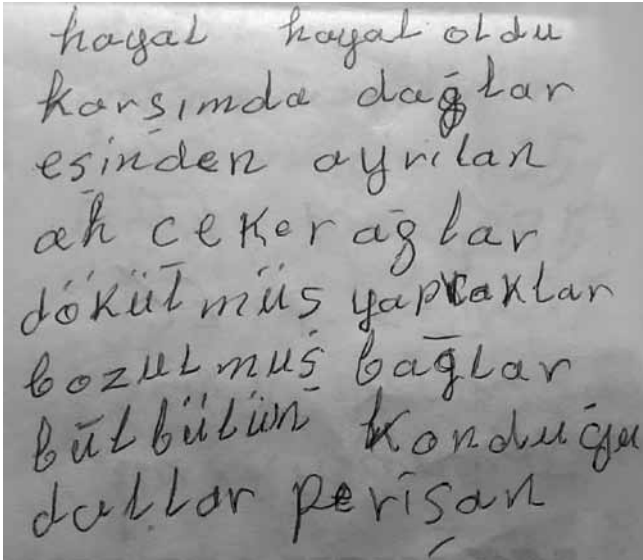 hayal hayal oldu
karşımda dağlar
eşinden ayrılan
ah ceker ağlar
dökülmüş yapraklar
bozulmuş bağlar
bülbülün konduğu
dallar perişan